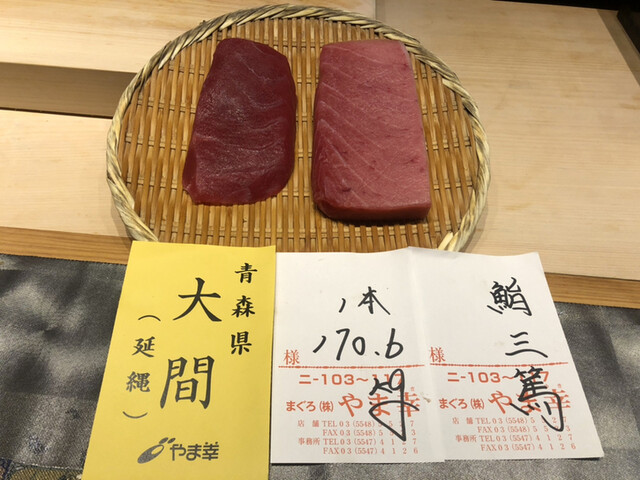 青森県
大間
（延縄）
やま幸
1本
170.6
様
ニ-103〜117
まぐろ（株）やま幸
店舗 TEL 03 (5548)
FAX 03 (5548)
事務所 TEL 03 (5547) 4127
FAX 03 (5547) 4126
鮨
三
篤
様
まぐろ（株）やま幸
店舗 TEL 03 (5548)
FAX 03 (5548)
事務所 TEL 03 (5547) 4127
FAX 03 (5547) 4126